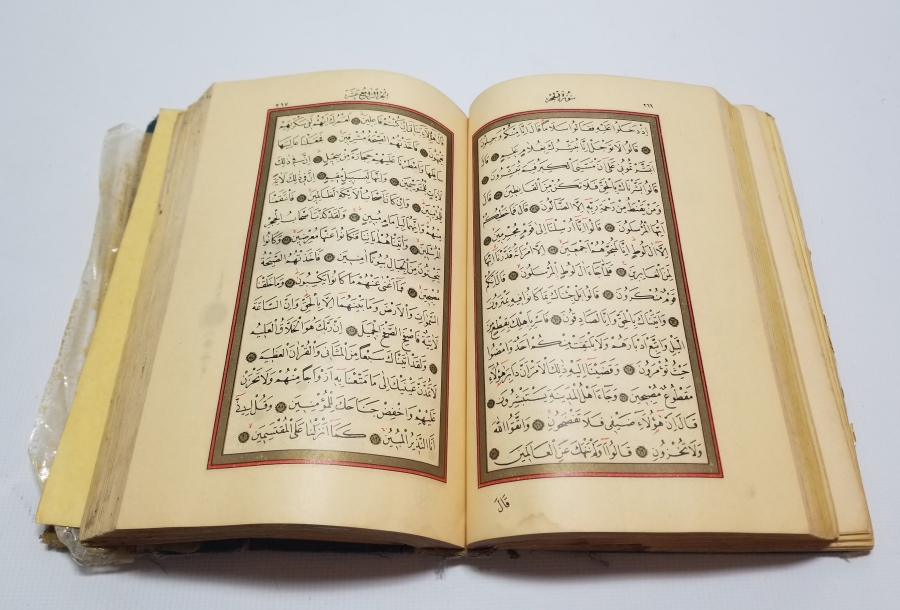 سُورَةُ الْحِجْرِ ٢٦٦
اِذْ دَخَلُوا عَلَيْهِ فَقَالُوا سَلَامًا قَالَ اِنَّا مِنْكُمْ وَجِلُونَ
قَالُوا لَا تَوْجَلْ اِنَّا نُبَشِّرُكَ بِغُلَامٍ عَلِيمٍ قَالَ
اَبَشَّرْتُمُونِي عَلٰى اَنْ مَسَّنِيَ الْكِبَرُ فَبِمَ تُبَشِّرُونَ
قَالُوا بَشَّرْنَاكَ بِالْحَقِّ فَلَا تَكُنْ مِنَ الْقَانِطِينَ قَالَ
وَمَنْ يَقْنَطُ مِنْ رَحْمَةِ رَبِّهِ اِلَّا الضَّالُّونَ قَالَ فَمَا خَطْبُكُمْ
اَيُّهَا الْمُرْسَلُونَ قَالُوا اِنَّا اُرْسِلْنَا اِلٰى قَوْمٍ مُجْرِمِينَ
اِلَّا اٰلَ لُوطٍ اِنَّا لَمُنَجُّوهُمْ اَجْمَعِينَ اِلَّا امْرَاَتَهُ قَدَّرْنَا اِنَّهَا
لَمِنَ الْغَابِرِينَ فَلَمَّا جَاءَ اٰلَ لُوطٍ الْمُرْسَلُونَ قَالَ اِنَّكُمْ
قَوْمٌ مُنْكَرُونَ قَالُوا بَلْ جِئْنَاكَ بِمَا كَانُوا فِيهِ يَمْتَرُونَ
وَاَتَيْنَاكَ بِالْحَقِّ وَاِنَّا لَصَادِقُونَ فَاَسْرِ بِاَهْلِكَ بِقِطْعٍ مِنَ
الَّيْلِ وَاتَّبِعْ اَدْبَارَهُمْ وَلَا يَلْتَفِتْ مِنْكُمْ اَحَدٌ وَامْضُوا
حَيْثُ تُؤْمَرُونَ وَقَضَيْنَا اِلَيْهِ ذٰلِكَ الْاَمْرَ اَنَّ دَابِرَ هٰؤُلَاءِ
مَقْطُوعٌ مُصْبِحِينَ وَجَاءَ اَهْلُ الْمَدِينَةِ يَسْتَبْشِرُونَ
قَالَ اِنَّ هٰؤُلَاءِ ضَيْفِي فَلَا تَفْضَحُونِ وَاتَّقُوا اللّٰهَ
وَلَا تُخْزُونِ قَالُوا اَوَلَمْ نَنْهَكَ عَنِ الْعَالَمِينَ
قَالَ
الجزء الرابع عشر ٢٦٧
قَالَ هٰؤُلَاءِ بَنَاتِي اِنْ كُنْتُمْ فَاعِلِينَ لَعَمْرُكَ اِنَّهُمْ لَفِي سَكْرَتِهِمْ
يَعْمَهُونَ فَاَخَذَتْهُمُ الصَّيْحَةُ مُشْرِقِينَ فَجَعَلْنَا عَالِيَهَا
سَافِلَهَا وَاَمْطَرْنَا عَلَيْهِمْ حِجَارَةً مِنْ سِجِّيلٍ اِنَّ فِي ذٰلِكَ
لَاٰيَاتٍ لِلْمُتَوَسِّمِينَ وَاِنَّهَا لَبِسَبِيلٍ مُقِيمٍ اِنَّ فِي ذٰلِكَ لَاٰيَةً
لِلْمُؤْمِنِينَ وَاِنْ كَانَ اَصْحَابُ الْاَيْكَةِ لَظَالِمِينَ فَانْتَقَمْنَا
مِنْهُمْ وَاِنَّهُمَا لَبِاِمَامٍ مُبِينٍ وَلَقَدْ كَذَّبَ اَصْحَابُ الْحِجْرِ
الْمُرْسَلِينَ وَاٰتَيْنَاهُمْ اٰيَاتِنَا فَكَانُوا عَنْهَا مُعْرِضِينَ وَكَانُوا
يَنْحِتُونَ مِنَ الْجِبَالِ بُيُوتًا اٰمِنِينَ فَاَخَذَتْهُمُ الصَّيْحَةُ
مُصْبِحِينَ فَمَا اَغْنٰى عَنْهُمْ مَا كَانُوا يَكْسِبُونَ وَمَا خَلَقْنَا
السَّمٰوَاتِ وَالْاَرْضَ وَمَا بَيْنَهُمَا اِلَّا بِالْحَقِّ وَاِنَّ السَّاعَةَ
لَاٰتِيَةٌ فَاصْفَحِ الصَّفْحَ الْجَمِيلَ اِنَّ رَبَّكَ هُوَ الْخَلَّاقُ الْعَلِيمُ
وَلَقَدْ اٰتَيْنَاكَ سَبْعًا مِنَ الْمَثَانِي وَالْقُرْاٰنَ الْعَظِيمَ
لَا تَمُدَّنَّ عَيْنَيْكَ اِلٰى مَا مَتَّعْنَا بِهِ اَزْوَاجًا مِنْهُمْ وَلَا تَحْزَنْ
عَلَيْهِمْ وَاخْفِضْ جَنَاحَكَ لِلْمُؤْمِنِينَ وَقُلْ اِنِّي
اَنَا النَّذِيرُ الْمُبِينُ كَمَا اَنْزَلْنَا عَلَى الْمُقْتَسِمِينَ